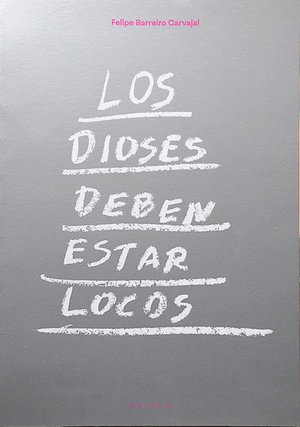 Felipe Barreiro Carvajal
LOS
DIOSES
DEBEN
ESTAR
LOCOS